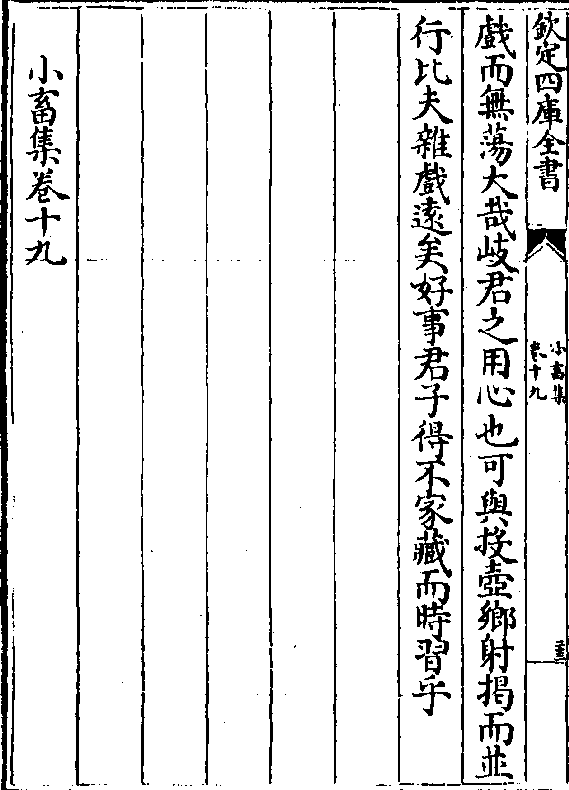 欽定四庫全書
小畜集
卷十九
戲而無蕩大哉歧君之用心也可與投壺鄉射揭而並
行比夫雜戲遠矣好事君子得不家藏而時習乎
小畜集卷十九